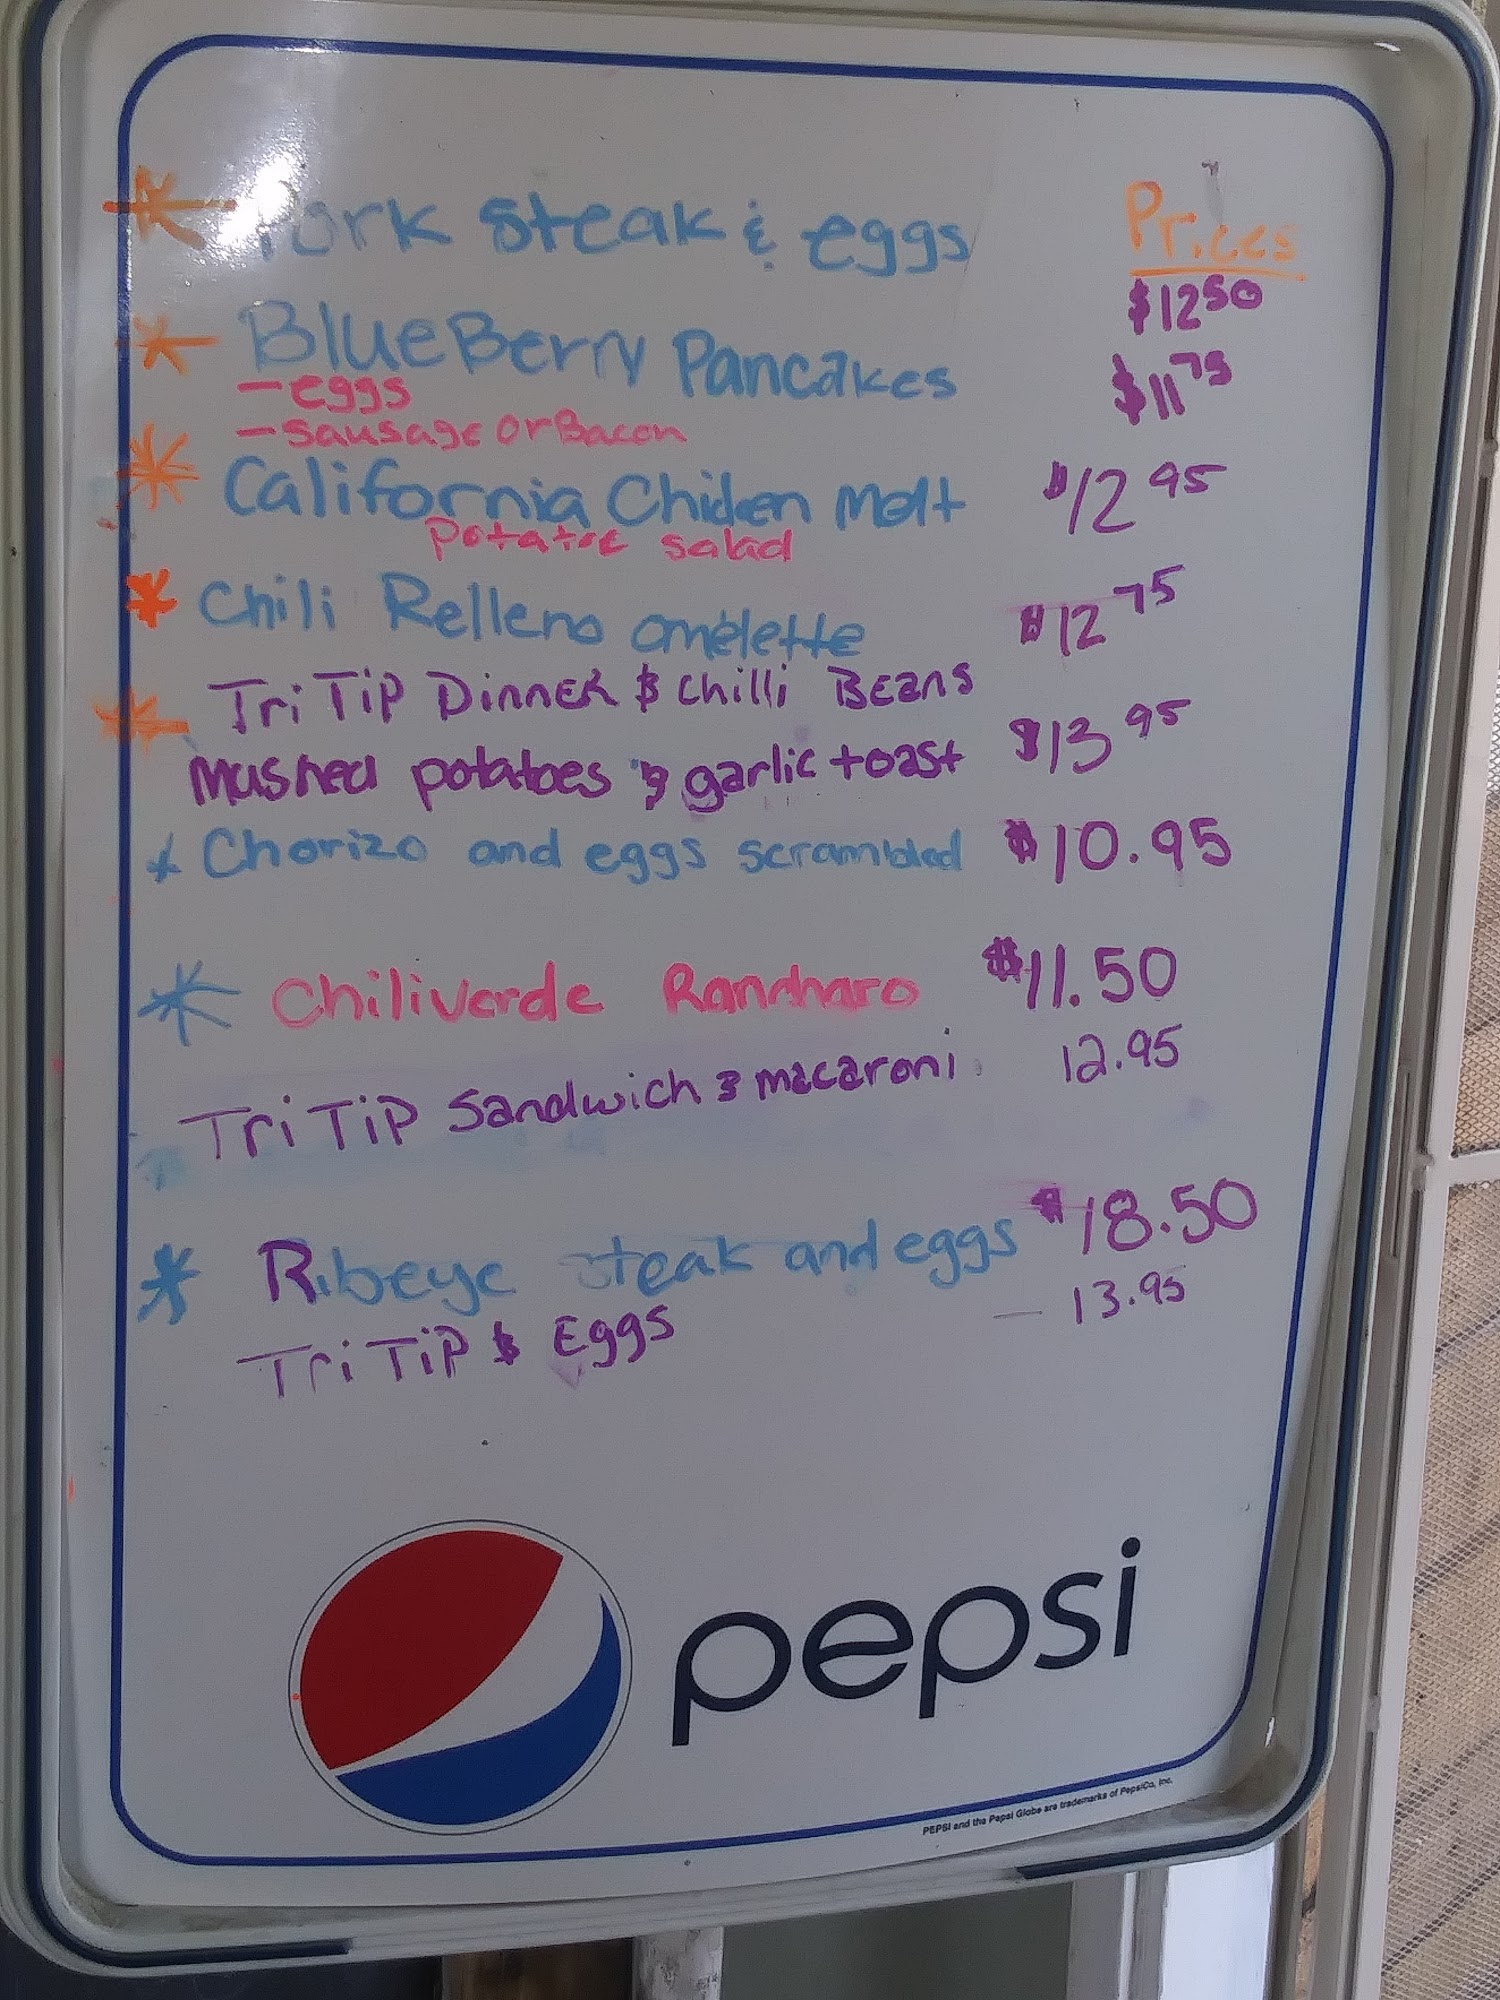 Pork steak & eggs
Prices
$12 50
BlueBerry Pancakes $11 75
- eggs
- sausage or Bacon
California Chicken Melt $12 95
Potatoe salad
Chili Relleno omelette $12 75
Tri Tip Dinner & Chilli Beans
Mashed potatoes & garlic toast $13 95
Chorizo and eggs scrambled $10.95
Chili Verde Rancharo $11.50
Tri Tip Sandwich & macaroni 12.95
Ribeye steak and eggs $18.50
Tri Tip & Eggs - 13.95
pepsi
PEPSI and the Pepsi Globe are trademarks of PepsiCo, Inc.